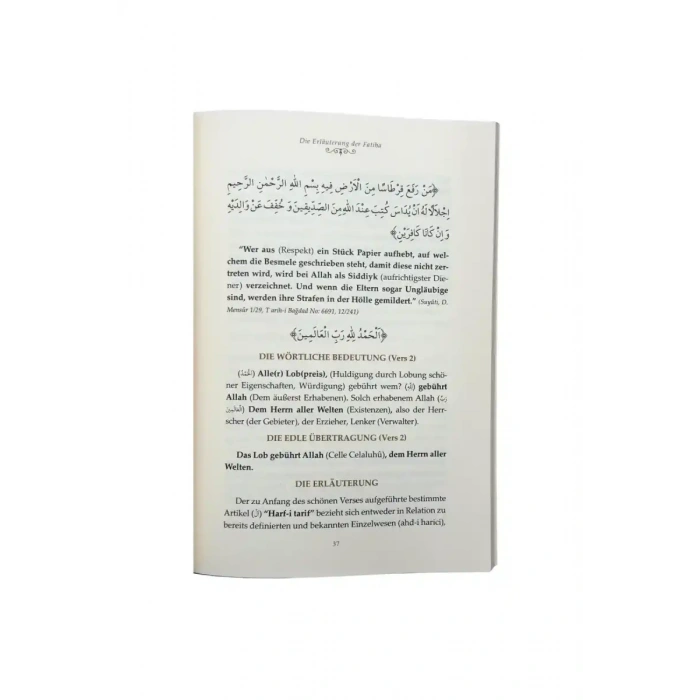 Die Erläuterung der Fatiha
﴿مَنْ رَفَعَ قِرْطَاسًا مِنَ الْاَرْضِ فِيهِ بِسْمِ اللهِ الرَّحْمٰنِ الرَّحِيمِ
اِجْلَالًا لَهُ اَنْ يُدَاسَ كُتِبَ عِنْدَ اللهِ مِنَ الصِّدِّيقِينَ وَ خُفِّفَ عَنْ وَالِدَيْهِ
وَ اِنْ كَانَا كَافِرَيْنِ﴾
"Wer aus (Respekt) ein Stück Papier aufhebt, auf wel-
chem die Besmele geschrieben steht, damit diese nicht zer-
treten wird, wird bei Allah als Siddiyk (aufrichtigster Die-
ner) verzeichnet. Und wenn die Eltern sogar Ungläubige
sind, werden ihre Strafen in der Hölle gemildert." (Suyûti, D.
Mensûr 1/29, T arih-i Bağdad No: 6691, 12/241)
﴿اَلْحَمْدُ لِلهِ رَبِّ الْعَالَمِينَ﴾
DIE WÖRTLICHE BEDEUTUNG (Vers 2)
(اَلْحَمْدُ) Alle(r) Lob(preis), (Huldigung durch Lobung schö-
ner Eigenschaften, Würdigung) gebührt wem? (لِلهِ) gebührt
Allah (Dem äußerst Erhabenen). Solch erhabenem Allah (رَبِّ)
(الْعَالَمِينَ) Dem Herrn aller Welten (Existenzen), also der Herr-
scher (der Gebieter), der Erzieher, Lenker (Verwalter).
DIE EDLE ÜBERTRAGUNG (Vers 2)
Das Lob gebührt Allah (Celle Celaluhû), dem Herrn aller
Welten.
DIE ERLÄUTERUNG
Der zu Anfang des schönen Verses aufgeführte bestimmte
Artikel (اَلْ) "Harf-i tarif" bezieht sich entweder in Relation zu
bereits definierten und bekannten Einzelwesen (ahd-i harici),
37